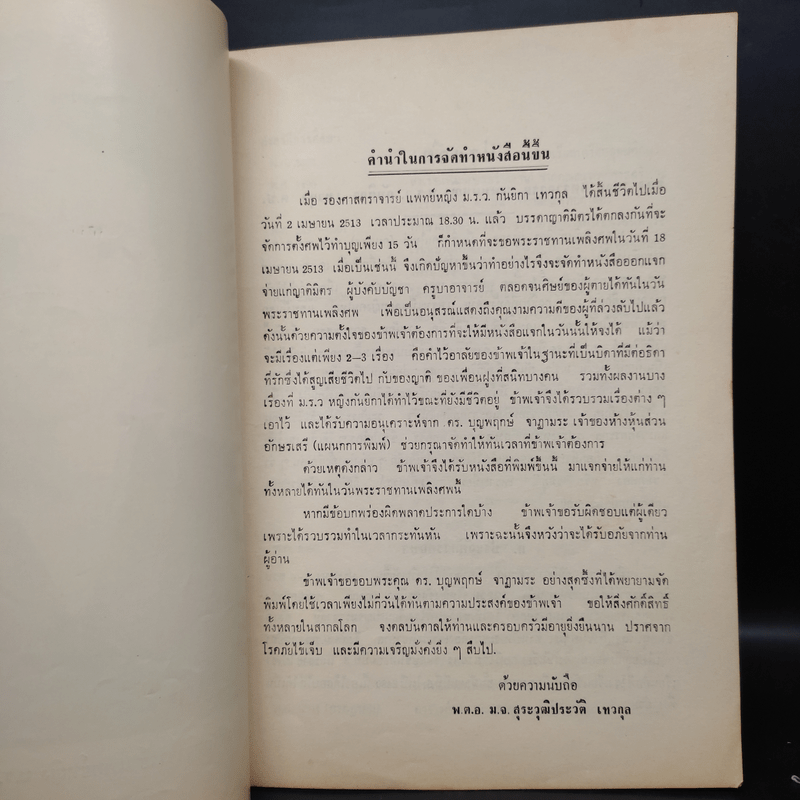 คำนำในการจัดทำหนังสือนี้ขึ้น
เมื่อ รองศาสตราจารย์ แพทย์หญิง ม.ร.ว. กันยิกา เทวกุล ได้สิ้นชีวิตไปเมื่อ
วันที่ 2 เมษายน 2513 เวลาประมาณ 18.30 น. แล้ว บรรดาญาติมิตรได้ตกลงกันที่จะ
จัดการตั้งศพไว้ทำบุญเพียง 15 วัน ก็กำหนดที่จะขอพระราชทานเพลิงศพในวันที่ 18
เมษายน 2513 เมื่อเป็นเช่นนี้ จึงเกิดปัญหาขึ้นว่าทำอย่างไรจึงจะจัดทำหนังสือออกแจก
จ่ายแก่ญาติมิตร ผู้บังคับบัญชา ครูบาอาจารย์ ตลอดจนศิษย์ของผู้ตายได้ทันในวัน
พระราชทานเพลิงศพ เพื่อเป็นอนุสรณ์แสดงถึงคุณงามความดีของผู้ที่ล่วงลับไปแล้ว
ดังนั้นด้วยความตั้งใจของข้าพเจ้าต้องการที่จะให้มีหนังสือแจกในวันนั้นให้จงได้ แม้ว่า
จะมีเรื่องแต่เพียง 2–3 เรื่อง คือคำไว้อาลัยของข้าพเจ้าในฐานะที่เป็นบิดาที่มีต่อธิดา
ที่รักซึ่งได้สูญเสียชีวิตไป กับของญาติ ของเพื่อนฝูงที่สนิทบางคน รวมทั้งผลงานบาง
เรื่องที่ ม.ร.ว หญิงกันยิกาได้ทำไว้ขณะที่ยังมีชีวิตอยู่ ข้าพเจ้าจึงได้รวบรวมเรื่องต่าง ๆ
เอาไว้ และได้รับความอนุเคราะห์จาก ดร. บุญพฤกษ์ จาฏามระ เจ้าของห้างหุ้นส่วน
อักษรเสรี (แผนกการพิมพ์) ช่วยกรุณาจัดทำให้ทันเวลาที่ข้าพเจ้าต้องการ
ด้วยเหตุดังกล่าว ข้าพเจ้าจึงได้รับหนังสือที่พิมพ์ขึ้นนี้ มาแจกจ่ายให้แก่ท่าน
ทั้งหลายได้ทันในวันพระราชทานเพลิงศพนี้
หากมีข้อบกพร่องผิดพลาดประการใดบ้าง ข้าพเจ้าขอรับผิดชอบแต่ผู้เดียว
เพราะได้รวบรวมทำในเวลากระทันหัน เพราะฉะนั้นจึงหวังว่าจะได้รับอภัยจากท่าน
ผู้อ่าน
ข้าพเจ้าขอขอบพระคุณ ดร. บุญพฤกษ์ จาฏามระ อย่างสุดซึ้งที่ได้พยายามจัด
พิมพ์โดยใช้เวลาเพียงไม่กี่วันได้ทันตามความประสงค์ของข้าพเจ้า ขอให้สิ่งศักดิ์สิทธิ์
ทั้งหลายในสากลโลก จงดลบันดาลให้ท่านและครอบครัวมีอายุยิ่งยืนนาน ปราศจาก
โรคภัยไข้เจ็บ และมีความเจริญมั่งคั่งยิ่ง ๆ สืบไป.
ด้วยความนับถือ
พ.ต.อ. ม.จ. สุระวุฒิประวัติ เทวกุล